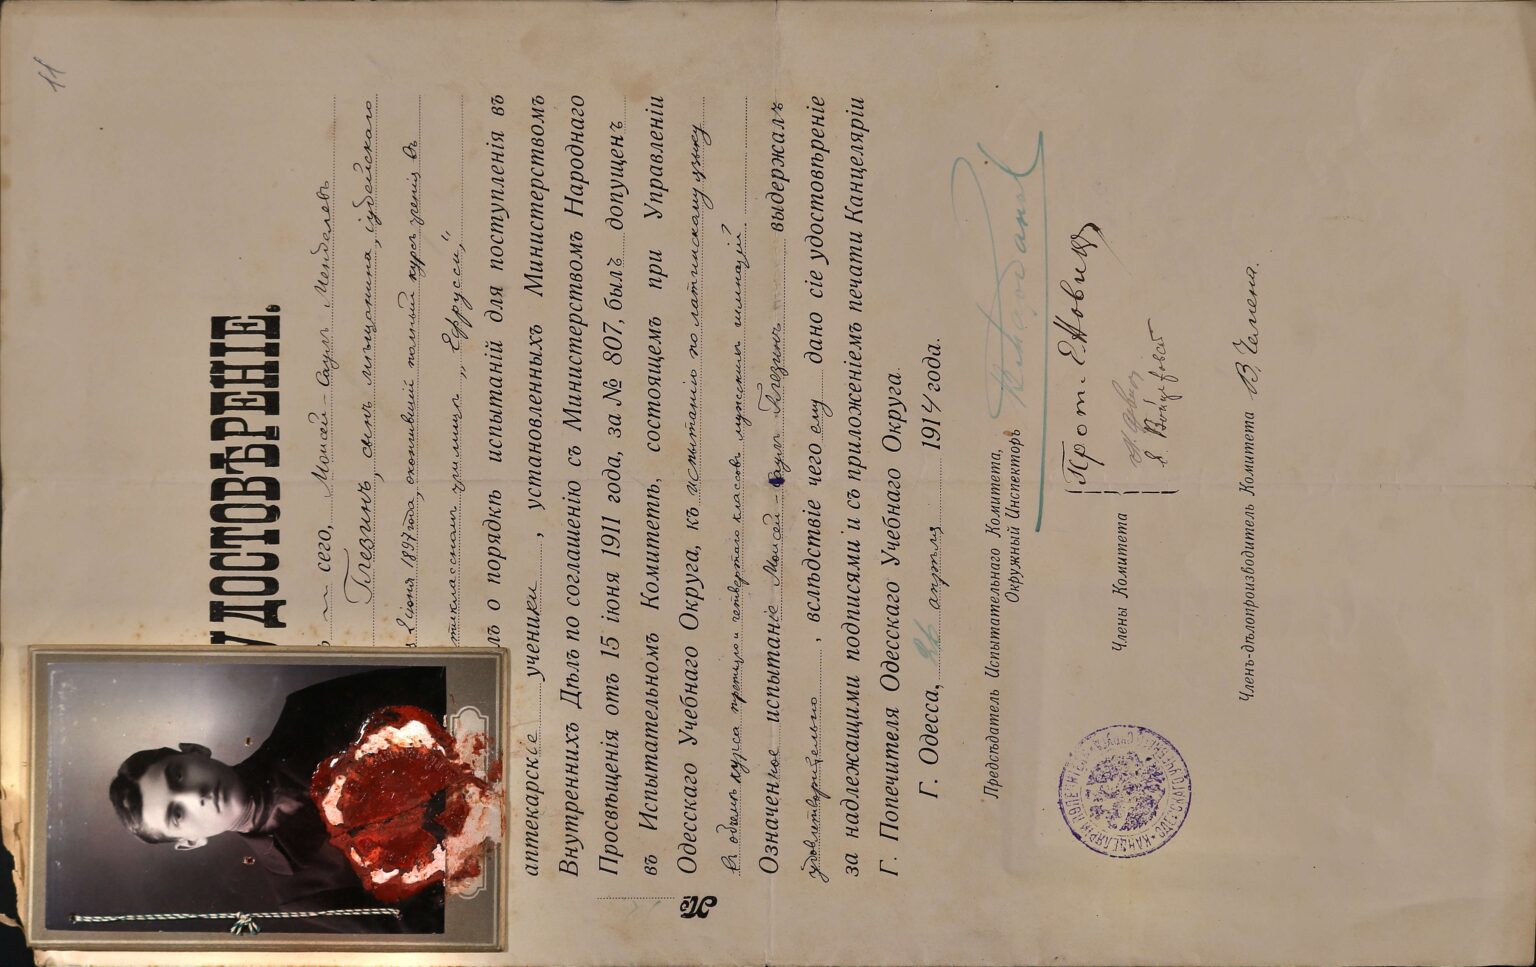 11
УДОСТОВѢРЕНІЕ.
сего, Моисей-Саулъ Менделевъ
Глезинъ, сынъ мѣщанина, іудейскаго
2 іюня 1897 года, окончившій полный курсъ ученія въ
училищѣ „Ефрусси",
о порядкѣ испытаній для поступленія въ
аптекарскіе ученики, установленныхъ Министерствомъ
Внутреннихъ Дѣлъ по соглашенію съ Министерствомъ Народнаго
Просвѣщенія отъ 15 іюня 1911 года, за № 807, былъ допущенъ
въ Испытательномъ Комитетѣ, состоящемъ при Управленіи
Одесскаго Учебнаго Округа, къ испытанію по латинскому языку
въ объемѣ курса третьяго и четвертаго классовъ мужскихъ гимназій.
Означенное испытаніе Моисей-Саулъ Глезинъ выдержалъ
удовлетворительно, вслѣдствіе чего ему дано сіе удостовѣреніе
за надлежащими подписями и съ приложеніемъ печати Канцеляріи
Г. Попечителя Одесскаго Учебнаго Округа.
Г. Одесса, 26 апрѣля 1914 года.
Предсѣдатель Испытательнаго Комитета,
Окружный Инспекторъ
Члены Комитета
Прот. Е. Новиц
Членъ-дѣлопроизводитель Комитета
№